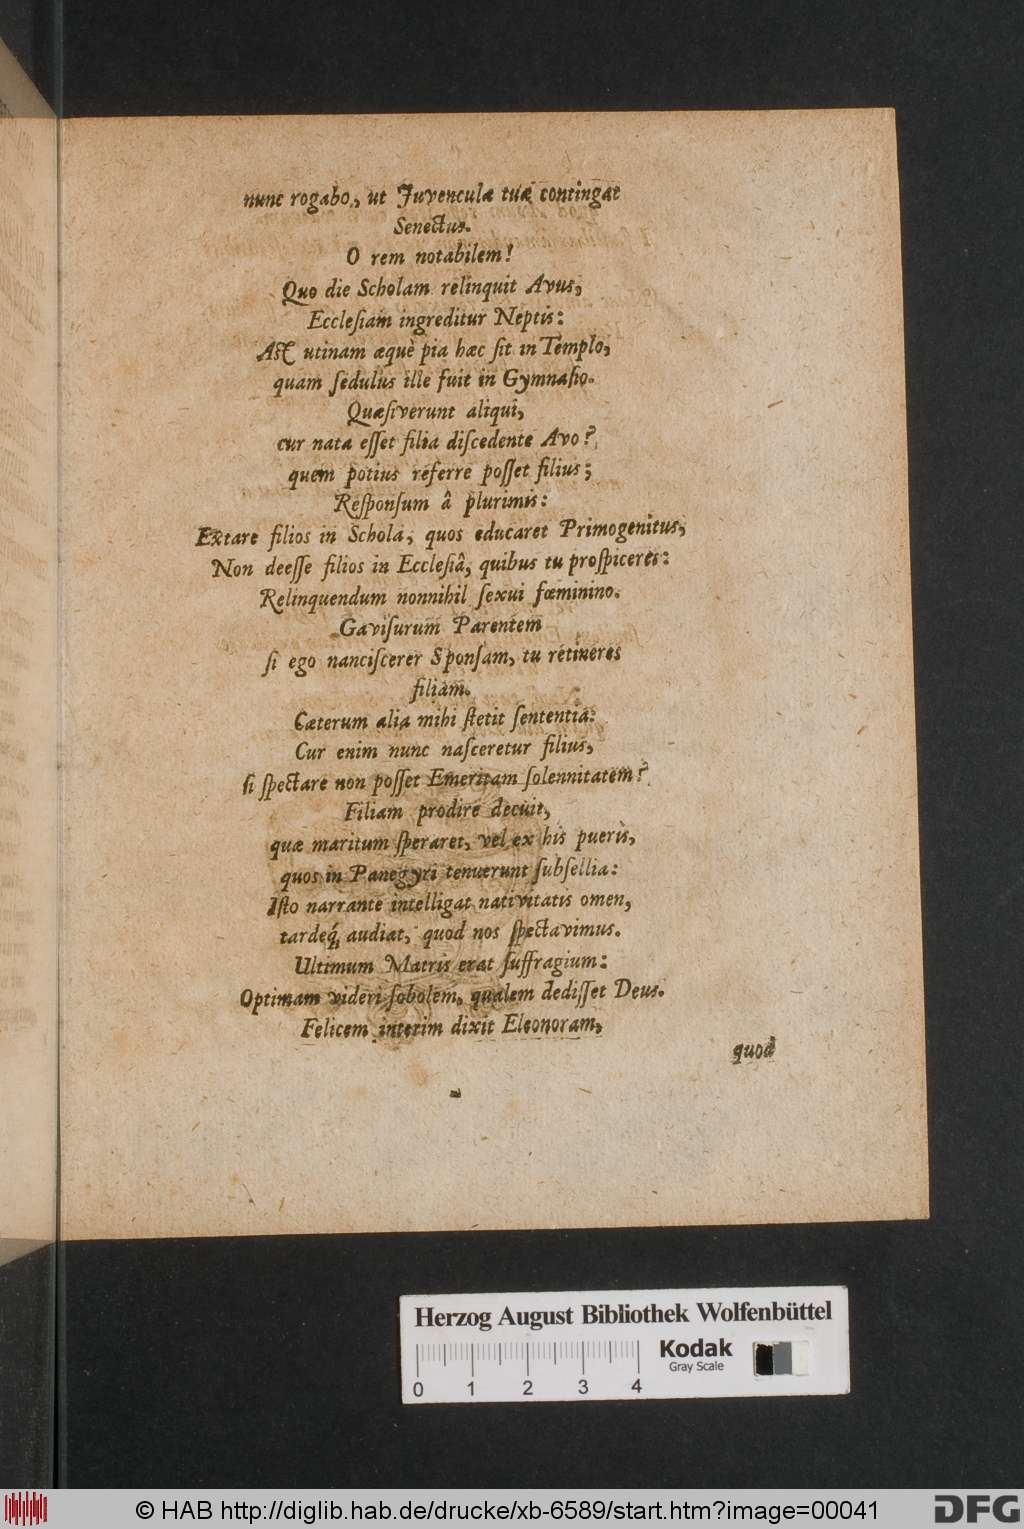 nunc rogabo, ut Juvenculæ tuæ contingat
Senectus.
O rem notabilem!
Quo die Scholam relinquit Avus,
Ecclesiam ingreditur Neptis:
Ast utinam æquè pia hæc sit in Templo,
quam sedulus ille fuit in Gymnasio.
Quæsiverunt aliqui,
cur nata esset filia discedente Avo?
quem potius referre posset filius;
Responsum â plurimis:
Extare filios in Schola, quos educaret Primogenitus,
Non deesse filios in Ecclesiâ, quibus tu prospiceres:
Relinquendum nonnihil sexui fœminino.
Gavisurum Parentem
si ego nanciscerer Sponsam, tu retineres
filiam.
Cæterum alia mihi stetit sententia:
Cur enim nunc nasceretur filius,
si spectare non posset Emeritam solennitatem?
Filiam prodire decuit,
quæ maritum speraret, vel ex his pueris,
quos in Panegyri tenuerunt subsellia:
Isto narrante intelligat nativitatis omen,
tardeq́; audiat, quod nos spectavimus.
Ultimum Matris erat suffragium:
Optimam videri sobolem, qualem dedisset Deus.
Felicem interim dixit Eleonoram,
quod
Herzog August Bibliothek Wolfenbüttel
Kodak
Gray Scale
0 1 2 3 4
© HAB http://diglib.hab.de/drucke/xb-6589/start.htm?image=00041
DFG